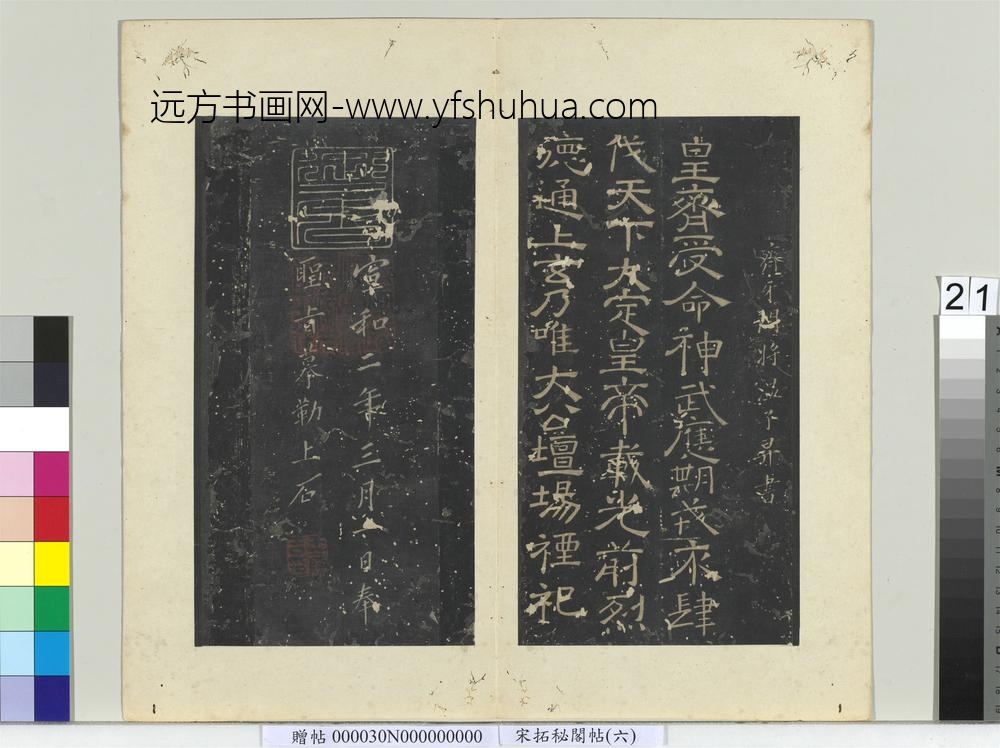 远方书画网-www.yfshuhua.com
齊牙將昇書
皇齊受命神武應期戎衣肆
伐天下大定皇帝載光前烈
德通上玄乃唯大公壇場禋祀
宣和二年三月六日奉
聖旨摹勒上石
21
贈帖 000030N000000000 宋拓秘閣帖(六)